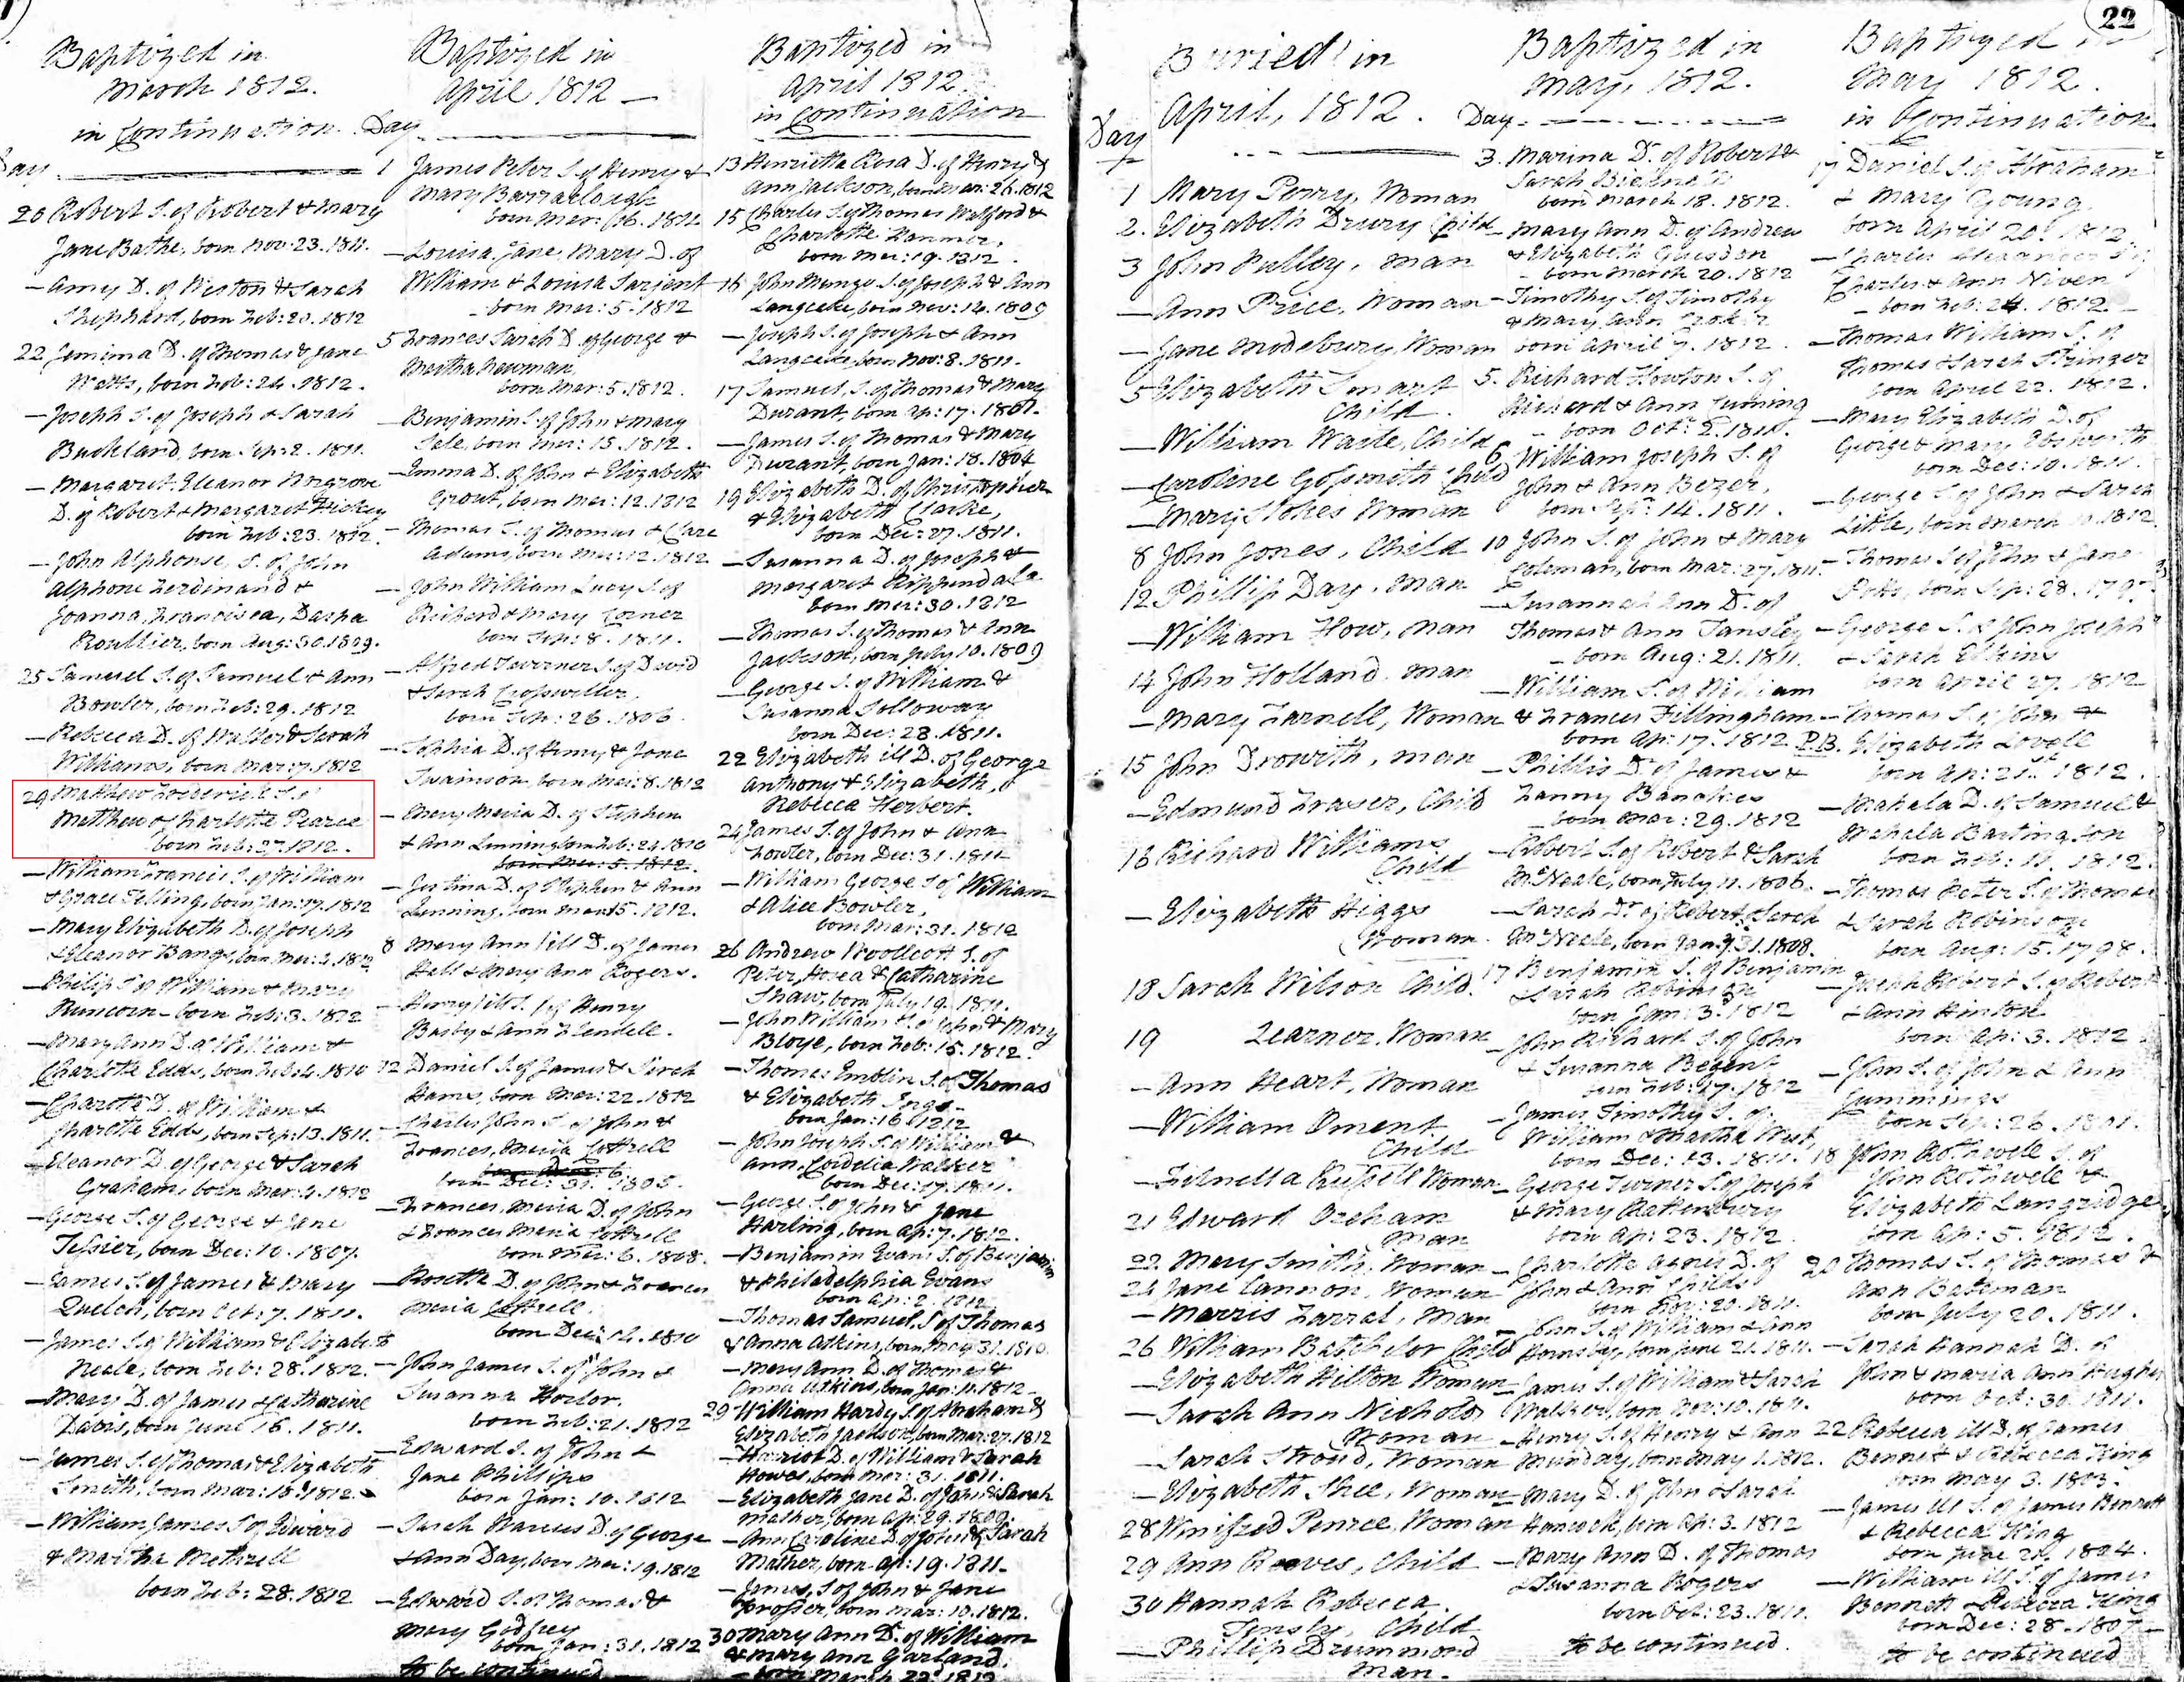 Baptized in
March 1812.
in Continuation.
Day
20 Robert S. of Robert & Mary
Jane Bathe, born Nov: 23. 1811.
— Amy D. of Weston & Sarah
Shephard, born Feb: 20. 1812
22 Jemima D. of Thomas & Jane
Watts, born Feb: 24. 1812.
— Joseph S. of Joseph & Sarah
Buckland, born Sep: 2. 1811.
— Margaret Eleanor Norgrove
D. of Robert & Margaret Hickey
born Feb: 23. 1812.
— John Alphonse, S. of John
Alphone Ferdinand &
Joanna, Francisca,
Roullier, born Aug: 30. 1809.
25 Samuel S. of Samuel & Ann
Bowler, born Feb: 29. 1812
— Rebecca D. of Walter & Sarah
Williams, born Mar: 7. 1812
29 Matthew Frederick S. of
Matthew & Charlotte Pearce
born Feb: 27. 1812.
— William Francis S. of William
& Grace Filling, born Jan: 17. 1812
— Mary Elizabeth D. of Joseph
& Eleanor Bangs, born Mar: 2. 1812
— Philip S. of William & Mary
Runcorn — born Feb: 3. 1812
— Mary Ann D. of William &
Charlotte Edds, born Feb: 4. 1810
— Charlotte D. of William &
Charlotte Edds, born Sep: 13. 1811.
— Eleanor D. of George & Sarah
Graham, born Mar: 4. 1812
— George S. of George & Jane
Tessier, born Dec: 10. 1807.
— James S. of James & Mary
Quelch, born Oct: 7. 1811.
— James S. of William & Elizabeth
Neale, born Feb: 28. 1812.
— Mary D. of James & Catharine
Davis, born June 16. 1811.
— James S. of Thomas & Elizabeth
Smith, born Mar: 18. 1812.
— William James S. of Edward
& Martha Methrell
born Feb: 28. 1812
Baptized in
April 1812 —
Day
1 James Peter S. of Henry &
Mary Barraclough
born Mar: 16. 1812
— Louisa, Jane, Mary D. of
William & Louisa Sarjent
born Mar: 5. 1812
5 Frances Sarah D. of George &
Martha Newman
born Mar: 5. 1812.
— Benjamin S. of John & Mary
Sale, born Mar: 15. 1812.
— Emma D. of John & Elizabeth
Grout, born Mar: 12. 1812
— Thomas S. of Thomas & Clare
Adams, born Mar: 12. 1812
— John William Lucy S. of
Richard & Mary Corner
born Sep: 8. 1811.
— Alfred Taverner S. of David
& Sarah Crosweller.
born Sep: 26. 1806.
— Sophia D. of Henry & Jane
Swainson, born Mar: 8. 1812
— Mary Maria D. of Stephen
& Ann Lenning, born Feb: 24. 1810
born Mar: 5. 1812.
— Justina D. of Stephen & Ann
Lenning, born Mar: 15. 1812.
8 Mary Ann ill D. of James
Hall & Mary Ann Rogers.
— Henry ill S. of Henry
Busby & Ann Blendell.
12 Daniel S. of James & Sarah
Hams, born Mar: 22. 1812
— Charles John S. of John &
Frances, Maria Cottrell
born Dec: 31. 1805.
— Frances, Maria D. of John
& Frances Maria Cottrell
born Mar: 6. 1808.
— Rosetta D. of John & Frances
Maria Cottrell.
born Dec: 14. 1810
— John James S. of John &
Susanna Horlor.
born Feb: 21. 1812
— Edward S. of John &
Jane Phillips
born Jan: 10. 1812
— Sarah Marcus D. of George
& Ann Day, born Mar: 19. 1812
— Edward S. of Thomas &
Mary Godfrey
born Jan: 31. 1812
to be continued
Baptized in
April 1812.
in Continuation
13 Henrietta Rosa D. of Henry &
Ann Jackson, born Mar: 26. 1812
15 Charles S. of Thomas Walford &
Charlotte Hanmer,
born Mar: 19. 1812
16 John Mungo S. of Joseph & Ann
Langcake, born Nov: 14. 1809
— Joseph S. of Joseph & Ann
Langcake, born Nov: 8. 1811.
17 Samuel S. of Thomas & Mary
Durant, born Ap: 17. 1801.
— James S. of Thomas & Mary
Durant, born Jan: 18. 1804
19 Elizabeth D. of Christopher
& Elizabeth Clarke,
born Dec: 27. 1811.
— Susanna D. of Joseph &
Margaret Rippendale
born Mar: 30. 1812
— Thomas S. of Thomas & Ann
Jackson, born July 10. 1809
— George S. of William &
Susanna Solloway
born Dec: 28. 1811.
22 Elizabeth ill D. of George
Anthony & Elizabeth,
Rebecca Herbert.
24 James S. of John & Ann
Fowler, born Dec: 31. 1811
— William George S. of William
& Alice Bowler.
born Mar: 31. 1812
26 Andrew Woollcott S. of
Peter, Hosea & Catharine
Shaw, born July 19. 1811.
— John William S. of John & Mary
Bloye, born Feb: 15. 1812.
— Thomas Emblin S. of Thomas
& Elizabeth Ings —
born Jan: 16. 1812
— John Joseph S. of William &
Ann, Cordelia Walker
born Dec: 17. 1811.
— George S. of John & Jane
Harling, born Ap: 7. 1812.
— Benjamin Evans S. of Benjamin
& Philadelphia Evans
born Ap: 2. 1812
— Thomas Samuel, S. of Thomas
& Anna Atkins, born May 31. 1810.
— Mary Ann D. of Thomas &
Anna Atkins, born Jan: 11. 1812
29 William Hardy S. of Abraham &
Elizabeth Jackson, born Mar: 27. 1812
— Harriot D. of William & Sarah
Howes, born Mar: 31. 1811.
— Elizabeth Jane D. of John & Sarah
Mather, born Ap: 29. 1809.
— Ann Caroline D. of John & Sarah
Mather, born Ap: 19. 1811.
— James, S. of John & Jane
Prosser, born Mar: 10. 1812.
30 Mary Ann D. of William
& Mary Ann Garland.
— born March 22. 1812
22
Buried in
April, 1812.
Day
1 Mary Perry, Woman
2. Elizabeth Drury Child
3 John Pulley, Man
— Ann Price, Woman
— Jane Modebury, Woman
5 Elizabeth Smart
Child.
— William Waite, Child
— Caroline Gosmith Child
— Mary Stokes Woman
8 John Jones, Child
12 Phillip Day, Man
— William How, Man
14 John Holland. Man
— Mary Farnell, Woman
15 John Drowith, Man
— Edmund Fraser, Child
16 Richard Williams
Child
— Elizabeth Higgs
Woman.
18 Sarah Wilson Child.
19 Learner, Woman
— Ann Heart, Woman
— William Oment
Child
— Russell Woman
21 Edward Oreham
Man
22 Mary Smith, Woman
24 Jane Cannon, Woman
— Morris Farral, Man
26 William Batchelor Child
— Elizabeth Hilton Woman
— Sarah Ann Nichols
Woman
— Sarah Stroud, Woman
— Elizabeth Shee, Woman
28 Winifred Pearce, Woman
29 Ann Reeves, Child
30 Hannah Rebecca.
Tinsly, Child
— Phillip Drummond
Man.
Baptized in
May, 1812.
Day
3. Marina D. of Robert &
Sarah
born March 18. 1812.
— Mary Ann D. of Andrew
& Elizabeth Guesden
born March 20. 1812
— Timothy S. of Timothy
& Mary Ann Croker
born April 7. 1812.
5. Richard Howton S. of
Richard & Ann Cuming
born Octr. 2. 1810.
6 William Joseph S. of
John & Ann Bezer,
born Sepr. 14. 1811.
10 John S. of John & Mary
Coleman, born Mar: 27. 1811.
— Susannah Ann D. of
Thomas & Ann Tansley
born Aug: 21. 1811.
— William S. of William
& Frances Fillingham
born Ap: 17. 1812
— Phillis D. of James &
Fanny Banckes
born Mar: 29. 1812
— Robert S. of Robert & Sarah
McNeale, born July 11. 1806.
— Sarah D. of Robert & Sarah
McNeale, born Jany. 31. 1808.
17 Benjamin S. of Benjamin
& Sarah Robinson
born Jan: 3. 1812
— John Richard S. of John
& Susanna Begent
born Feb: 17. 1812
— James Timothy S. of
William & Martha West,
born Dec: 13. 1811.
— George Turner S. of Joseph
& Mary Rattenbury
born Ap: 23. 1812.
— Charlotte Agnes D. of
John & Ann Childs
born Nov: 20. 1811.
— John S. of William & Ann
Hornsby, born June 21. 1811.
— James S. of William & Sarah
Walker, born Nov: 10. 1811.
— Henry S. of Henry & Ann
Munday, born May 1. 1812.
— Mary D. of John & Sarah
Hancock, born Ap: 3. 1812
— Mary Ann D. of Thomas
& Susanna Rogers
born Oct: 23. 1811.
to be continued.
Baptized in
May 1812.
in Continuation
17 Daniel S. of Abraham
& Mary Young,
born April 20. 1812.
— Charles Alexander S. of
Charles & Ann Niven
— born Feb: 24. 1812 —
— Thomas William S. of
Thomas & Sarah Stringer
born April 22. 1812.
— Mary Elizabeth D. of
George & Mary Ebsworth
born Dec: 10. 1811.
— George S. of John & Sarah
Little, born March 10. 1812
— Thomas S. of John & Jane
Potts, born Sep: 28.
— George S. of John Joseph
& Sarah Elkins
born April 27. 1812
— Thomas S. of John &
P.B. Elizabeth Lovell
born Ap: 21st. 1812.
— Mahala D. of Samuel &
Mahala Bartington
born Feb: 11. 1812.
— Thomas Peter S. of Thomas
& Sarah Robinson
born Aug: 15. 1798.
— Joseph Robert S. of Robert
& Ann Hinton
born Ap: 3. 1812
— John S. of John & Ann
Gummings
born Sep: 26. 1801.
18 John Rothwell S. of
John Rothwell &
Elizabeth Langridge
born Ap: 5. 1812.
20 Thomas S. of Thomas &
Ann Bateman
born July 20. 1811.
— Sarah Hannah D. of
John & Maria Ann Hughes
born Oct: 30. 1811.
22 Rebecca ill D. of James
Bennett & Rebecca King
born May 3. 1803.
— James ill S. of James Bennett
& Rebecca King
born June 21. 1804.
— William ill S. of James
Bennett & Rebecca King
born Dec: 28. 1807 —
to be continued